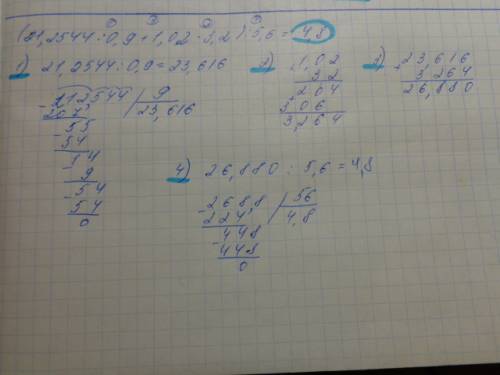 1 2 4 3
(21,2544 : 0,9 + 1,02 · 3,2) : 5,6 = 4,8
1) 21,2544 : 0,9 = 23,616
212,544 | 9
23,616
207
55
54
14
9
54
54
0
2) 1,02
3,2
204
306
3,264
3) 23,616
3,264
26,880
4) 26,880 : 5,6 = 4,8
268,8 | 56
4,8
224
448
448
0